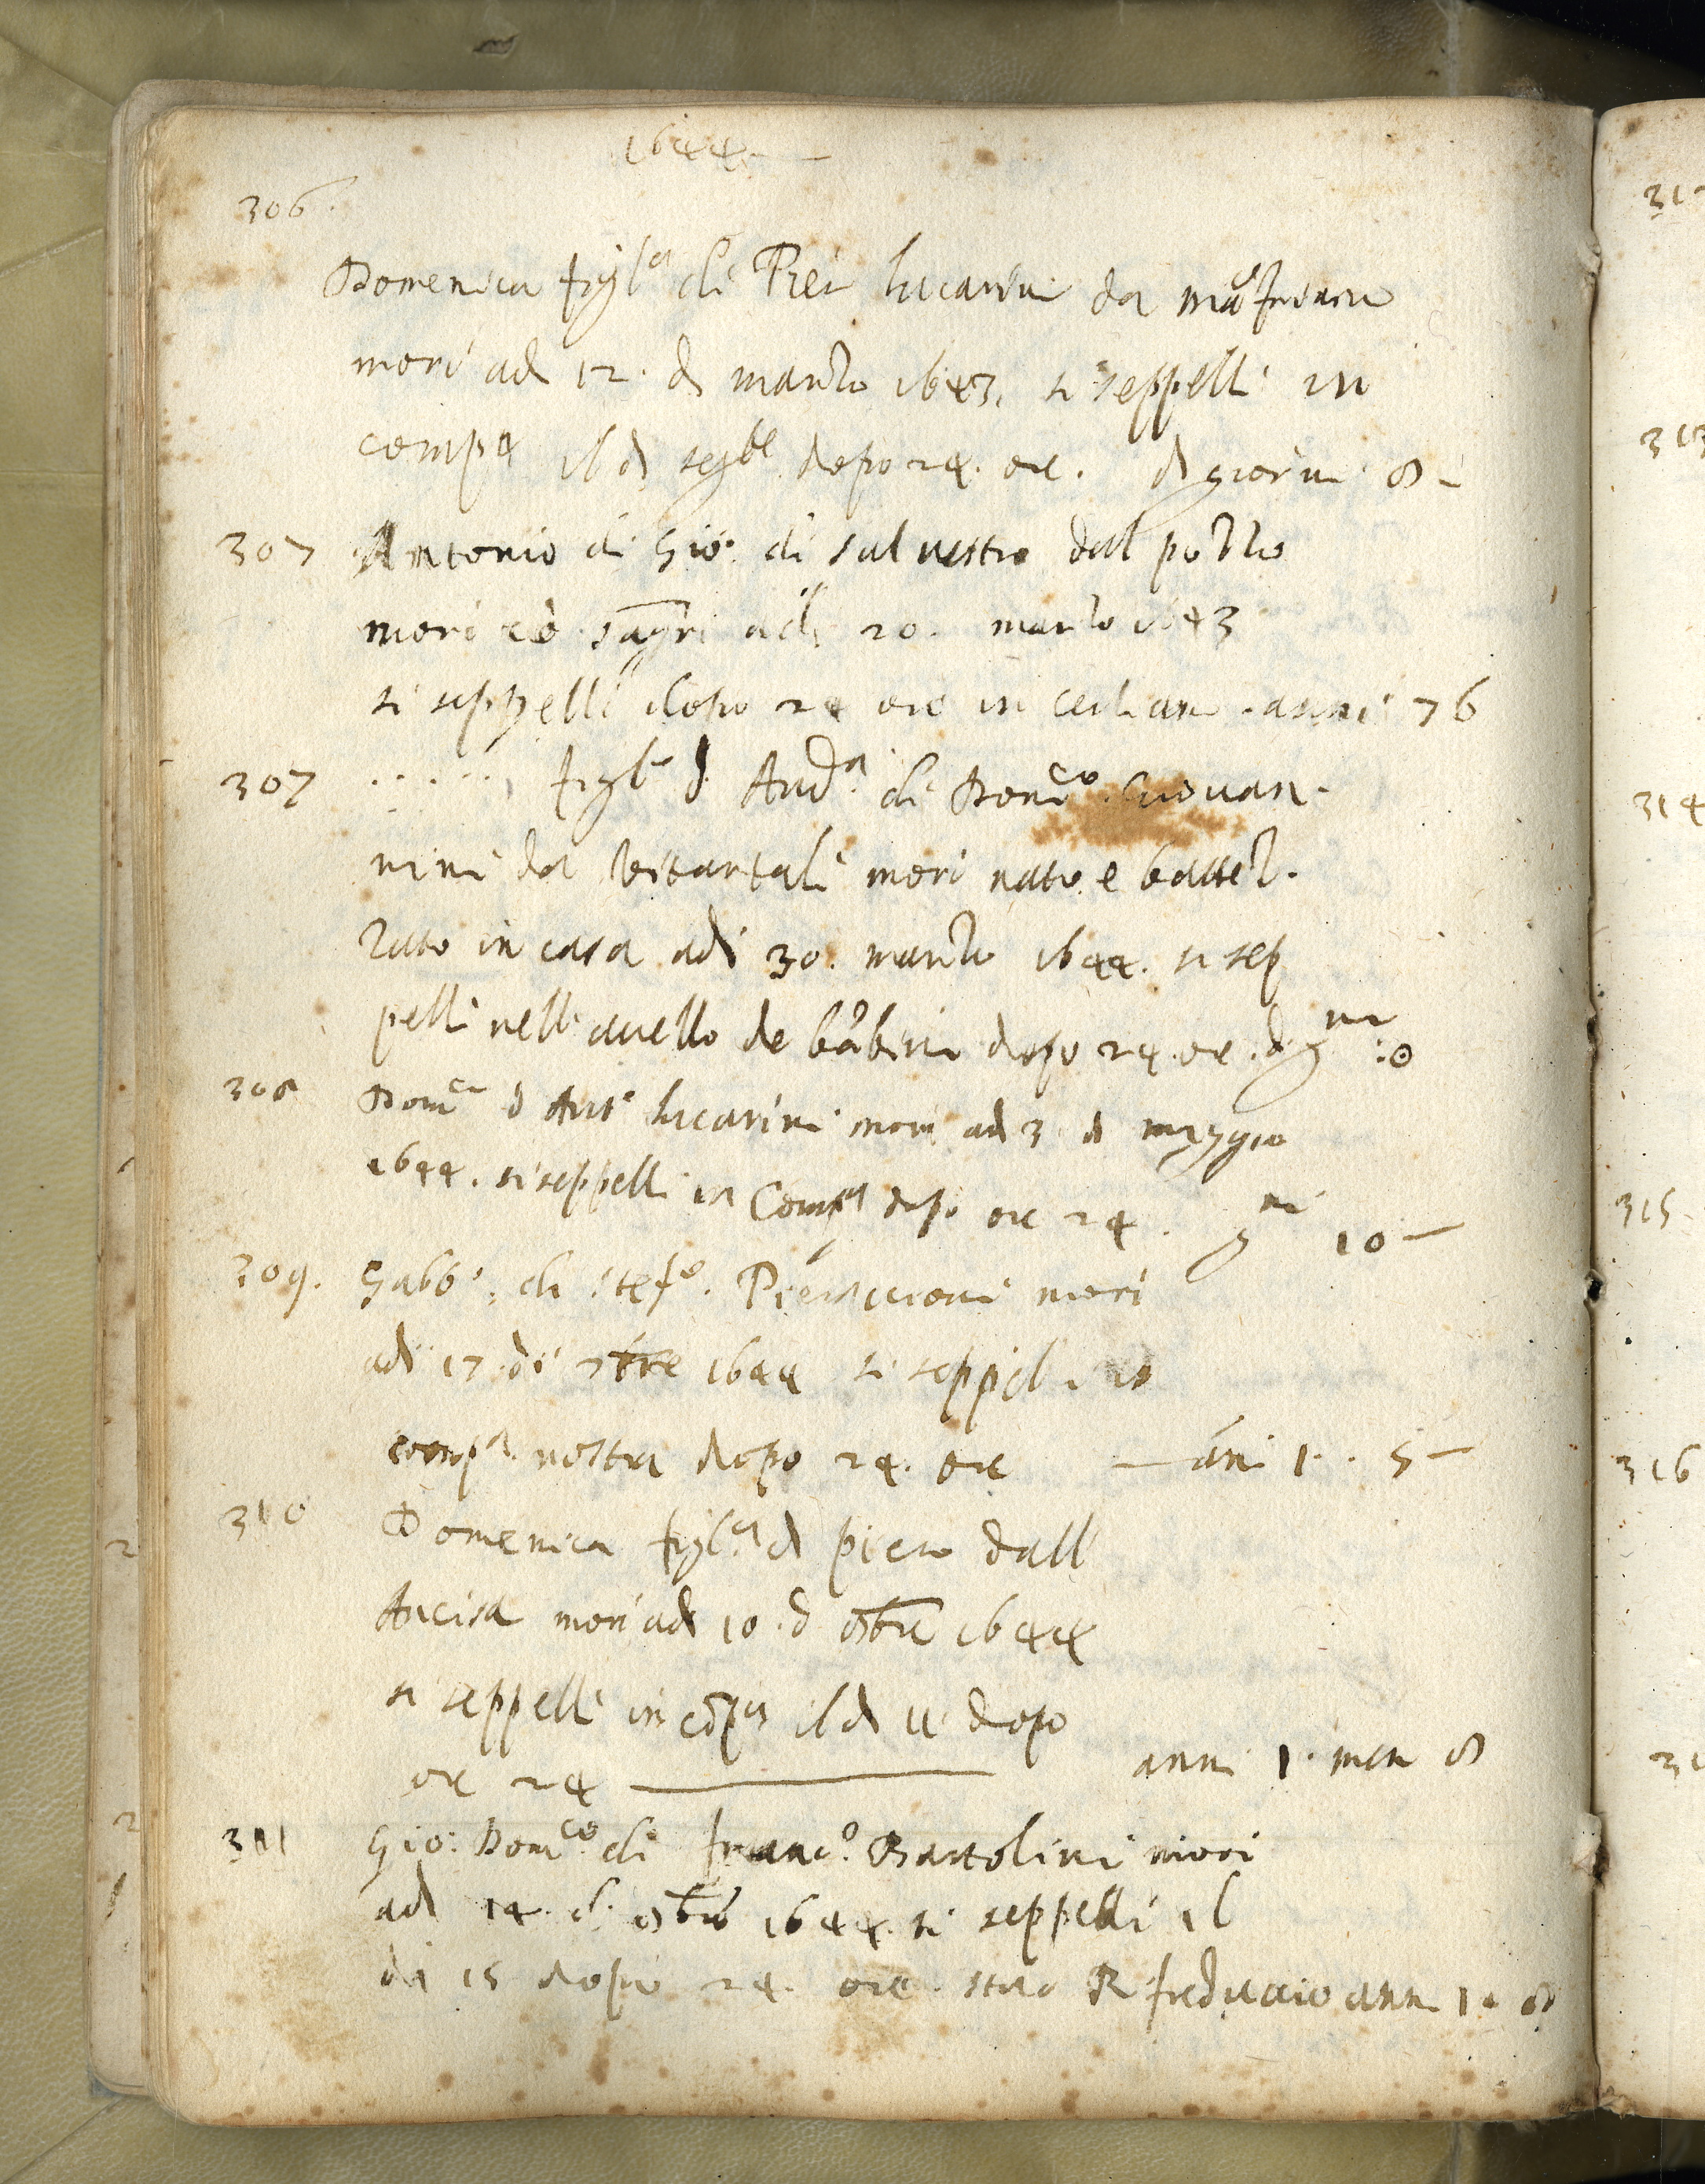 1644
306.
Domenica figl.a di Pier lucarini da
morì adi 12. di marzo 1643. si seppellì in
comp.a il dì seg.te dopo 24. ore. di giorni 8 -
307 Antonio di Gio: di saluestro dal pozzo
morì cō sagrī adi 20. marzo 1643
si seppellì dopo 24 ore in anni 76
307 ...... figl.o d And.a di Dom.co Giouan-
nini da Vitartali morì nato e battez-
zato in casa adi 30. marzo 1644. si sep
pellì nell auello de bābini dopo 24. ore. d g.ni :0
308 Dom.ca d Ant.o lucarini morì adi 3 di maggio
1644. si seppellì in Comp.a dopo ore 24. g.ni 10 -
309. Gabb.o di Stef.o Pieraccioni morì
adi 17 di 7bre 1644 si seppel. in
comp.a nostra dopo 24. ore — āni 1. . 5 -
310 Domenica figl.a d piero dall
Ancisa morì adi 10. d 8bre 1644
si seppellì in cōp.a il dì 11 dopo
ore 24 —— anni 1. mesi 8
311 Gio: Dom.co di franc.o Bartolini morì
adi 14. di 8bre 1644. si seppellì il
dì 15 dopo 24. ore. anni 1. 8
312
313
314
315.
316